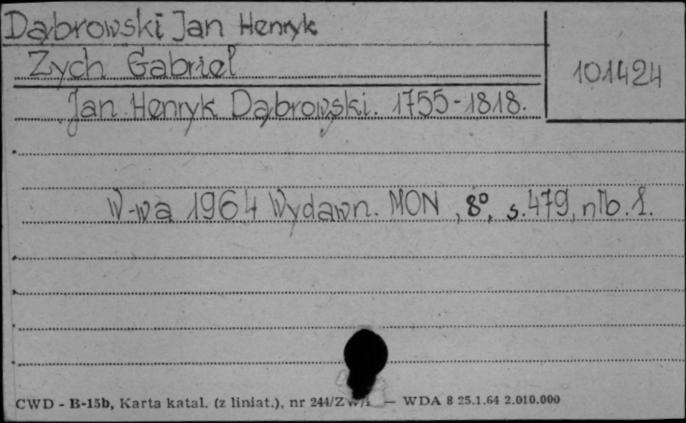 Dąbrowski Jan Henryk
Zych Gabriel
101424
Jan Henryk Dąbrowski. 1755-1818.
W-wa 1964 Wydawn. MON, 8°, s. 479, nlb. 1.
CWD - B-15b, Karta katal. (z liniat.), nr 244/Zw/1 — WDA 8 25.1.64 2.010.000